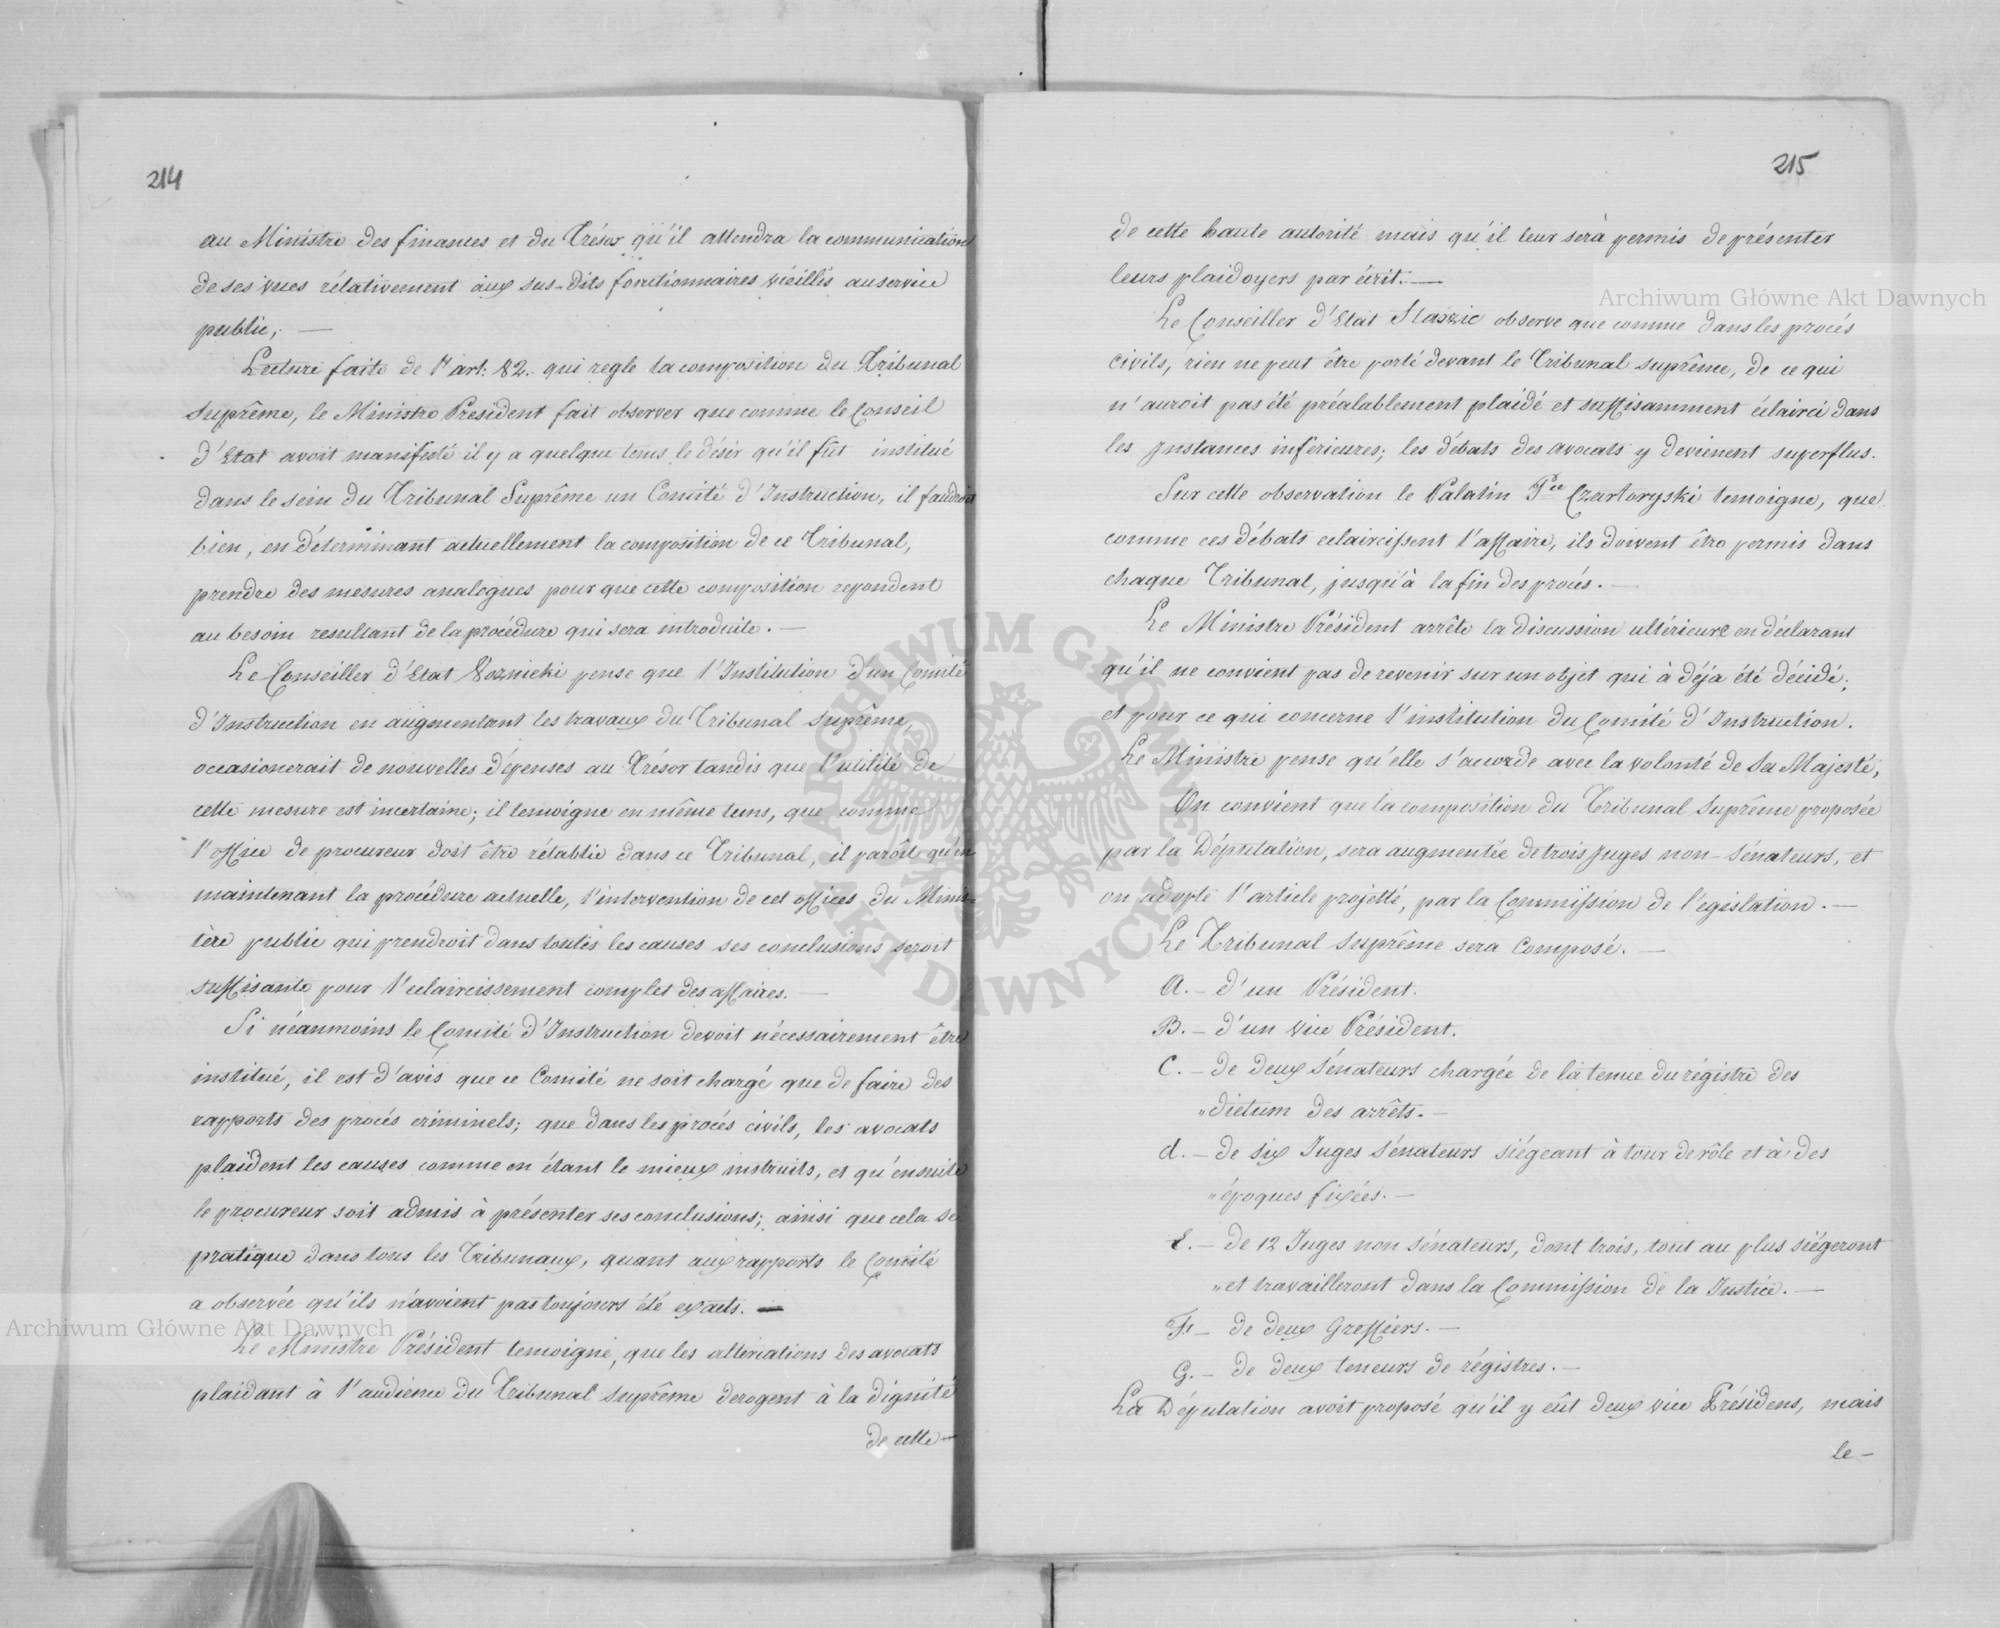 214
au Ministre des finances et du Trésor qu'il attendra la communication
de ses vues rélativement aux sus-dits fonctionnaires vieillis au service
public, —
Lecture faite de l'art: 82. qui regle la composition du Tribunal
Suprême, le Ministre Président fait observer que comme le Conseil
d'Etat avoit manifesté il y a quelque tems le désir qu'il fût institué
dans le sein du Tribunal Suprême un Comité d'Instruction, il faudroit
bien, en déterminant actuellement la composition de ce Tribunal,
prendre des mesures analogues pour que cette composition repondent
au besoin resultant de la procédure qui sera introduite. —
Le Conseiller d'Etat Woznicki pense que l'Institution d'un Comité
d'Instruction en augmentant les travaux du Tribunal Suprême,
occasionerait de nouvelles dépenses au Trésor tandis que l'utilité de
cette mesure est incertaine; il temoigne en même tems, que comme
l'office de procureur doit être rétablie dans ce Tribunal, il paroît qu'en
maintenant la procédure actuelle, l'intervention de cet offices du Minis-
tère public qui prendroit dans toutes les causes ses conclusions seroit
suffisante pour l'eclaircissement complet des affaires. —
Si néanmoins le Comité d'Instruction devoit nécessairement être
institué, il est d'avis que ce Comité ne soit chargé que de faire des
rapports des procés criminels; que dans les procés civils, les avocats
plaident les causes comme en étant le mieux instruits, et qu'ensuite
le procureur soit admis à présenter ses conclusions; ainsi que cela se
pratique dans tous les Tribunaux, quant aux rapports le Comité
a observée qu'ils n'avoient pas toujours été exacts. —
Le Ministre Président temoigne, que les altercations des avocats
plaidant à l'audience du Tribunal Suprême derogent à la dignité
de cette —
215
de cette haute autorité mais qu'il leur serà permis de présenter
leurs plaidoyers par écrit. —
Le Conseiller d'Etat Staszic observe que comme dans les procés
civils, rien ne peut être porté devant le Tribunal suprême, de ce qui
n'auroit pas été préalablement plaidé et suffisamment éclairci dans
les Instances inferieures; les débats des avocats y devienent superflus.
Sur cette observation le Palatin Pce Czartoryski temoigne, que
comme ces débats eclaircissent l'affaire, ils doivent être permis dans
chaque Tribunal, jusqu'à la fin des procés. —
Le Ministre Président arrête la discussion ultérieure en déclarant
qu'il ne convient pas de revenir sur un objet qui à déja été décidé;
et pour ce qui concerne l'institution du Comité d'Instruction.
Le Ministre pense qu'elle s'accorde avec la volonté de Sa Majesté,
On convient que la composition du Tribunal Suprême proposée
par la Députation, sera augmentée de trois Juges non-Sénateurs, et
on adopte l'article projetté, par la Commission de l'egislation. —
Le Tribunal Suprême sera composé. —
A. — d'un Président.
B. — d'un vice Président.
C. — de deux Sénateurs chargée de la tenue du régistre des
" dictum des arrêts. —
d. — de six Juges Sénateurs siégeant à tour de rôle et à des
" époques fixées. —
E. — de 12 Juges non Sénateurs, dont trois, tout au plus siégeront
" et travailleront dans la Commission de la Justice. —
F. — de deux Greffiers. —
G. — de deux teneurs de régistres. —
La Députation avoit proposé qu'il y eût deux vice Présidens, mais
le —
Archiwum Główne Akt Dawnych
Archiwum Główne Akt Dawnych
ARCHIWUM GŁÓWNE
AKT DAWNYCH